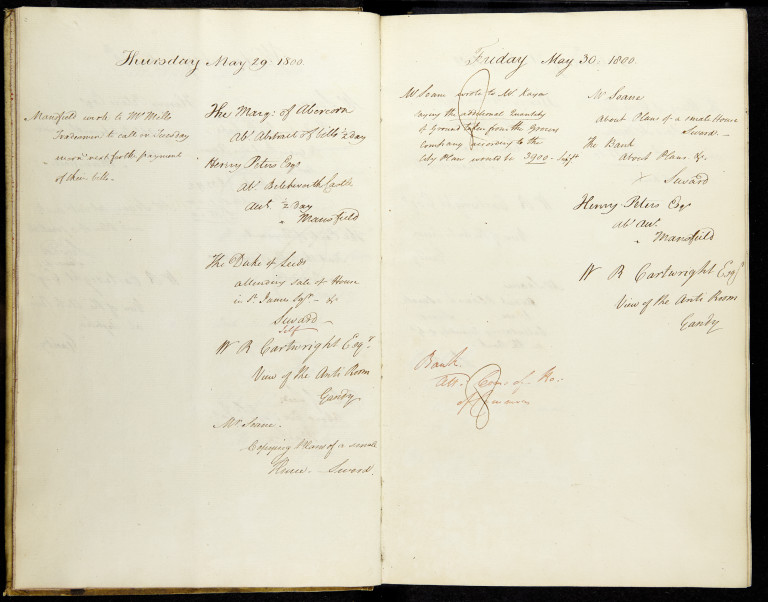 Thursday May 29. 1800.
Mansfield wrote to Mr Mills
Tradesmen to call on Tuesday
morng next for the payment
of their bills.
The Marq: of Abercorn
abt Abstract of bills ½ day
Henry Peters Esqr
abt Betchworth Castle
½ day
" Mansfield
The Duke of Leeds
attending Sale of House
in St James Sqr. - &c
Seward
Self
W R Cartwright Esqr
View of the Anti Room
Gandy
Mr Soane.
Copying Plans of a small
House. - Seward.
Friday May 30. 1800.
Mr Soane wrote to Mr
saying the additional Quantity
of Ground taken from the Grocers
Company according to the
City Plan would be 3900 - Supl
Mr Soane
About Plans of a small House
Seward. -
The Bank
About Plans. &c.
x Seward
Henry Peters Esqr
abt
" Mansfield
W R Cartwright Esqr
View of the Anti Room
Gandy
Bank
Com: of Ho:
of Commons